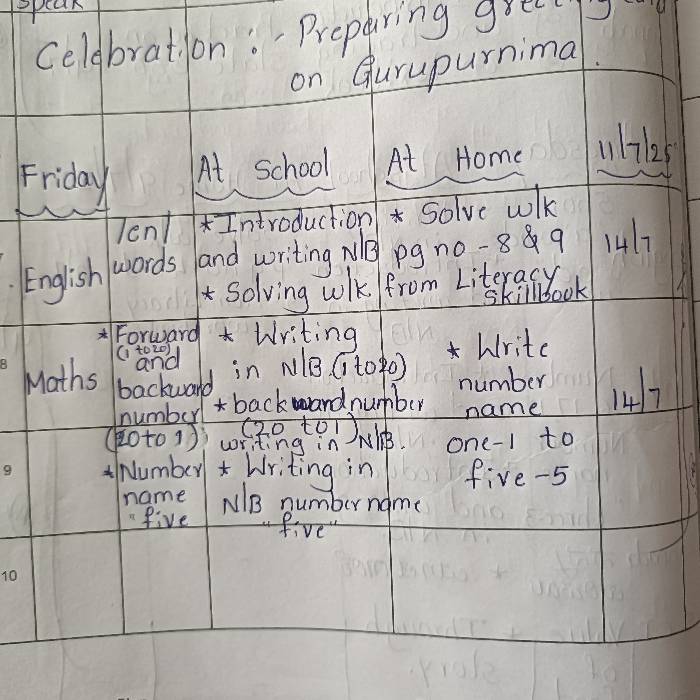 speak
Celebration :- Preparing greeting card
on Gurupurnima.
Friday At School At Home 11/7/25
English /en/ words * Introduction and writing N/B * Solve wlk pg no - 8 & 9 14/7
* Solving wlk from Literacy skillbook
8
Maths * Forward (1 to 20) and backward number (20 to 1) * Writing in N/B (1 to 20) * Write number name 14/7
* backward number (20 to 1) writing in N/B. one-1 to five-5
9
* Number name "five * Writing in N/B number name "five"
10